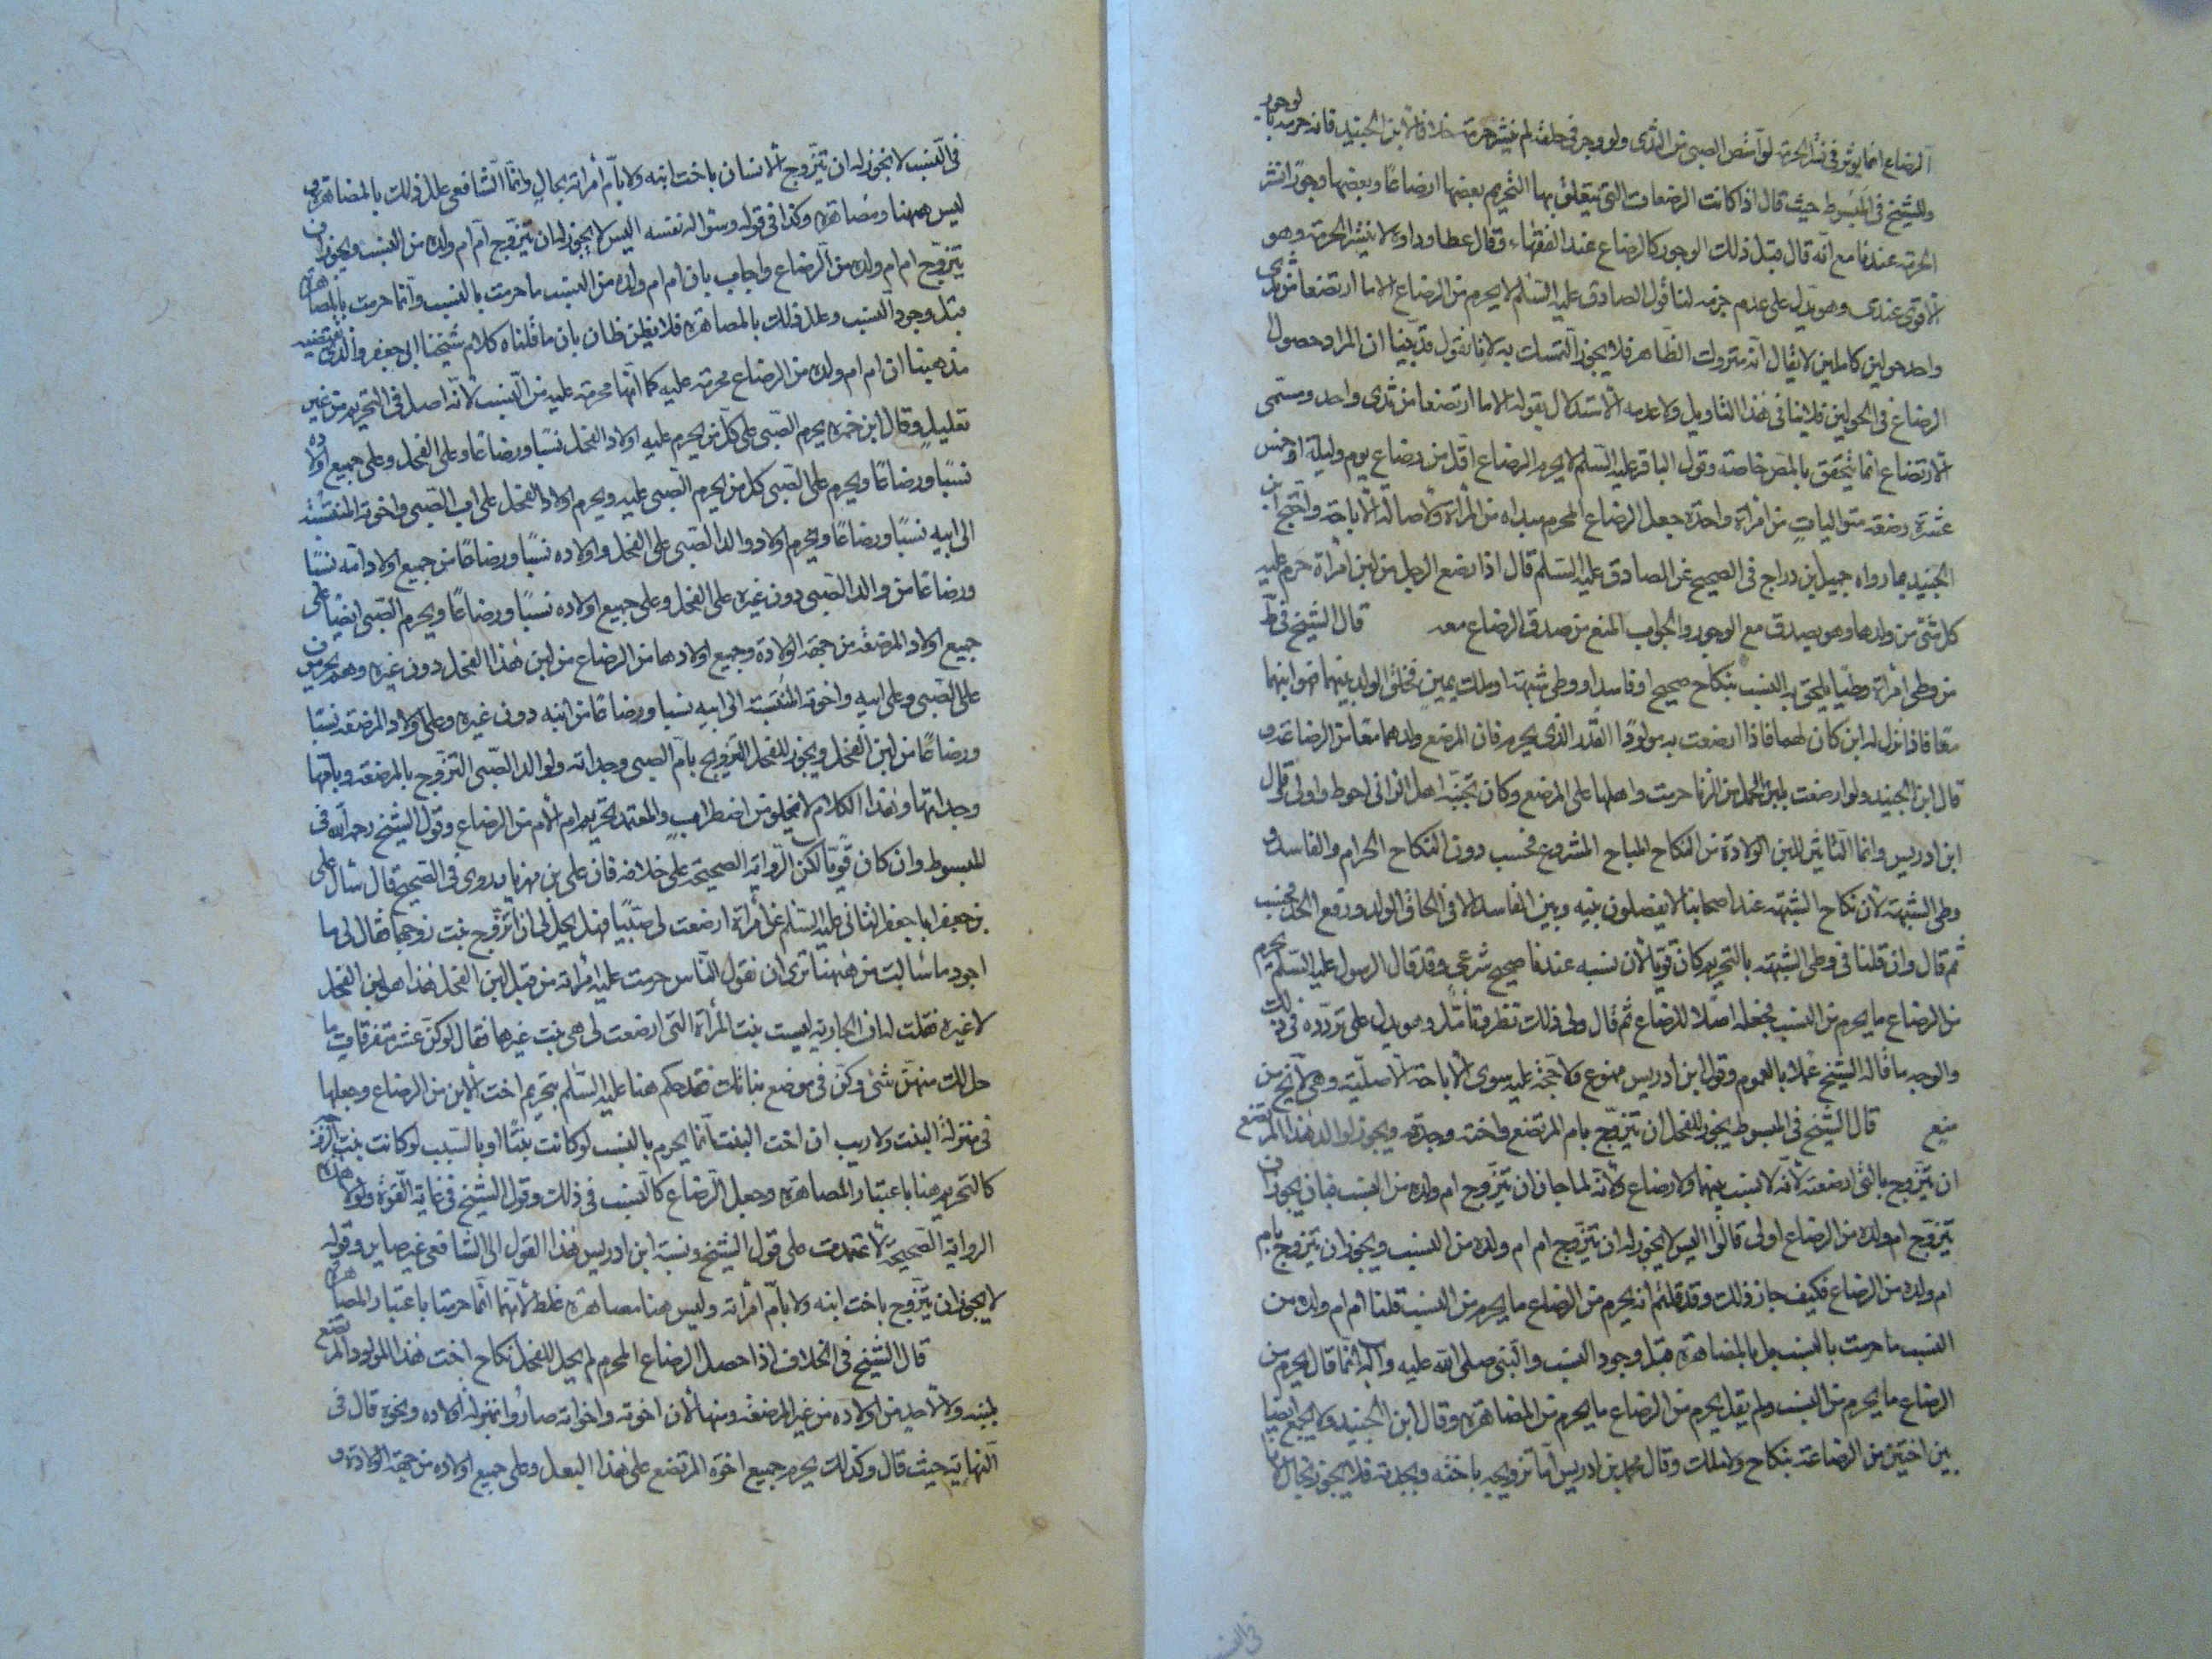 الرضاع انما يؤثر في نشر الحرمة لو امتص الصبي من الثدي ولو وجر في حلقه لم ينشر حرمة خلافا لابن الجنيد فانه حرم بالوجور
وللشيخ في المبسوط حيث قال اذا كانت الرضعات التي يتعلق بها التحريم بعضها ارضاعا وبعضها وجورا نشر
الحرمة عندنا مع انه قال قبل ذلك الوجور كالرضاع عند الفقهاء وقال عطا وداود لا ينشر الحرمة وهو
الاقوى عندي وهو يدل على عدم جزمه لنا قول الصادق عليه السلم لا يحرم من الرضاع الا ما ارتضعا من ثدي
واحد حولين كاملين لا يقال انه متروك الظاهر فلا يجوز التمسك به لانا نقول قد بينا ان المراد حصول
الرضاع في الحولين فلا ينافي هذا التاويل ولا عدمه الاستدلال بقوله الا ما ارتضعا من ثدي واحد ومسمى
الارتضاع انما يتحقق بالمص خاصة وقول الباقر عليه السلم لا يحرم الرضاع اقل من رضاع يوم وليلة او خمس
عشرة رضعة متواليات من امراة واحدة جعل الرضاع المحرم مبداه من المراة ولاصالة الاباحة واحتج ابن
الجنيد بما رواه جميل بن دراج في الصحيح عن الصادق عليه السلم قال اذا رضع الرجل من لبن امراة حرم عليه
كل شئ من ولدها وهو يصدق مع الوجور والجواب المنع من صدق الرضاع معه قال الشيخ في ط
من وطى امراة وطيا يلحق به النسب بنكاح صحيح او فاسد او وطى شبهة او ملك يمين فخلق الولد بينهما فهو ابنهما
معا فاذا نزل له لبن كان لهما فاذا ارضعت به مولودا القدر الذي يحرم فان المرضع ولدهما معا من الرضاعة و
قال ابن الجنيد ولو ارضعت بلبن الحمل من الزنا حرمت واهلها على المرضع وكان تجنبه اهل الزاني احوط واولى قال
ابن ادريس وانما التاثير للبن الولادة من النكاح المباح المشروع فحسب دون النكاح الحرام والفاسد و
وطى الشبهة لان نكاح الشبهة عند اصحابنا لا يفصلون بينه وبين الفاسد الا في الحاق الولد ورفع الحد فحسب
ثم قال وان قلنا في وطى الشبهة بالتحريم كان قويا لان نسبه عندنا صحيح شرعي وقد قال الرسول عليه السلم يحرم
من الرضاع ما يحرم من النسب فجعله اصلا للرضاع ثم قال ولي في ذلك نظر وتامل وهو يدل على تردده في ذلك
والوجه ما قاله الشيخ عملا بالعموم وقول ابن ادريس ممنوع ولا حجة عليه سوى الاباحة الاصلية وهي لا تخ من
منع قال الشيخ في المبسوط يجوز للفحل ان يتزوج بام المرتضع واخته وجدته ويجوز لوالد هذا المرتضع
ان يتزوج بالتي ارضعته لانه لا نسب بينهما ولا رضاع ولانه لما جاز ان يتزوج ام ولده من النسب فبان يجوز ان
يتزوج ام ولده من الرضاع اولى قالوا اليس لا يجوز له ان يتزوج ام ام ولده من النسب ويجوز ان يتزوج بام
ام ولده من الرضاع فكيف جاز ذلك وقد قلتم انه يحرم من الرضاع ما يحرم من النسب قلنا ام ام ولده من
النسب ما حرمت بالنسب بل بالمصاهرة قبل وجود النسب والنبي صلى الله عليه وآله انما قال يحرم من
الرضاع ما يحرم من النسب ولم يقل يحرم من الرضاع ما يحرم من المصاهرة وقال ابن الجنيد ولا يجمع ايضا
بين اختين من الرضاعة بنكاح ولا ملك وقال محمد بن ادريس اما تزويجه باخته وبجدته فلا يجوز بحال
في النسب
في النسب لا يجوز له ان يتزوج الانسان باخت ابنه ولا بام امراته بحال وانما الشافعي علل ذلك بالمصاهرة و
ليس ههنا مصاهرة وكذا في قوله وسؤاله نفسه اليس لا يجوز له ان يتزوج ام ام ولده من النسب ويجوز ان
يتزوج ام ام ولده من الرضاع واجاب بان ام ام ولده من النسب ما حرمت بالنسب وانما حرمت بالمصاهرة
قبل وجود النسب وعلل ذلك بالمصاهرة فلا يظن ظان بان ما قلناه كلام شيخنا ابي جعفر والذي يقتضيه
مذهبنا ان ام ام ولده من الرضاع محرمة عليه كما انها محرمة عليه من النسب لانه اصل في التحريم من غير
تعليل وقال ابن حمزة يحرم الصبي على كل من يحرم عليه اولاد الفحل نسبا ورضاعا وعلى الفحل وعلى جميع اولاده
نسبا ورضاعا ويحرم على الصبي كل من يحرم الصبي عليه ويحرم اولاد الفحل على اب الصبي واخوته المنتسبة
الى ابيه نسبا ورضاعا ويحرم اولاد والد الصبي على الفحل واولاده نسبا ورضاعا من جميع اولاد امه نسبا
ورضاعا من والد الصبي دون غيره على الفحل وعلى جميع اولاده نسبا ورضاعا ويحرم الصبي ايضا على
جميع اولاد المرضعة من جهة الولادة وجميع اولادها من الرضاع من لبن هذا الفحل دون غيره وهم يحرمون
على الصبي وعلى ابيه واخوته المنتسبة الى ابيه نسبا ورضاعا من ابنه دون غيره وعلى اولاد المرضعة نسبا
ورضاعا من لبن الفحل ويجوز للفحل التزويج بام الصبي وجداته ولوالد الصبي التزوج بالمرضعة وبامها
وجداتها وهذا الكلام لا يخلو من اضطراب والمعتمد تحريم ام الام من الرضاع وقول الشيخ رحمه الله في
المبسوط وان كان قويا لكن الرواية الصحيحة على خلافه فان علي بن مهزيار روى في الصحيح قال سال على
بن جعفر ابا جعفر الثاني عليه السلم عن امراة ارضعت لي صبيا فهل يحل لي ان اتزوج بنت زوجها فقال لي ما
اجود ما سالت من ههنا ترى ان تقول الناس حرمت عليه امراته من قبل لبن الفحل هذا هو لبن الفحل
لا غيره فقلت له ان الجارية ليست بنت المراة التي ارضعت لي هي بنت غيرها فقال لو كن عشر متفرقات ما
حل لك منهن شئ وكن في موضع بناتك فقد حكم هنا عليه السلم بتحريم اخت الابن من الرضاع وجعلها
في منزلة البنت ولا ريب ان اخت البنت انما يحرم بالنسب لو كانت بنتا او بالسبب لو كانت بنت الزوجة
كالتحريم هنا باعتبار المصاهرة وجعل الرضاع كالنسب في ذلك وقول الشيخ في غاية القوة ولولا هذه
الرواية الصحيحة لاعتمدت على قول الشيخ ونسبة ابن ادريس هذا القول الى الشافعي غير صاير وقوله
لا يجوز ان يتزوج باخت ابنه ولا بام امراته وليس هنا مصاهرة غلط لانهما انما حرمتا باعتبار المصاهرة
قال الشيخ في الخلاف اذا حصل الرضاع المحرم لم يحل للفحل نكاح اخت هذا المولود المرتضع
بلبنه ولا لاحد من اولاده من غير المرضعة ومنها لان اخوته واخواته صاروا بمنزلة اولاده ونحوه قال في
النهاية حيث قال وكذلك يحرم جميع اخوة المرتضع على هذا البعل وعلى جميع اولاده من جهة الولادة و